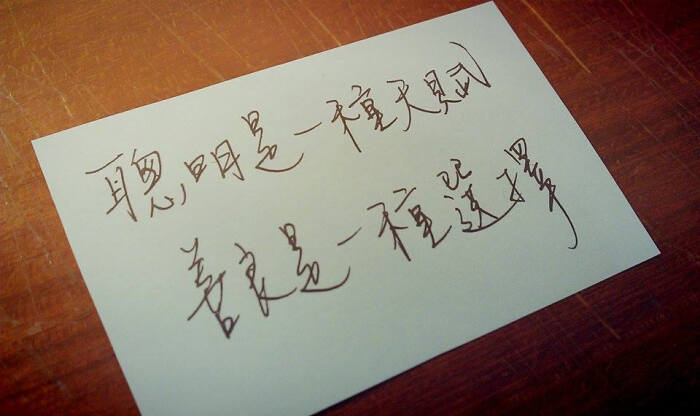 聰明是一種天賦
善良是一種選擇